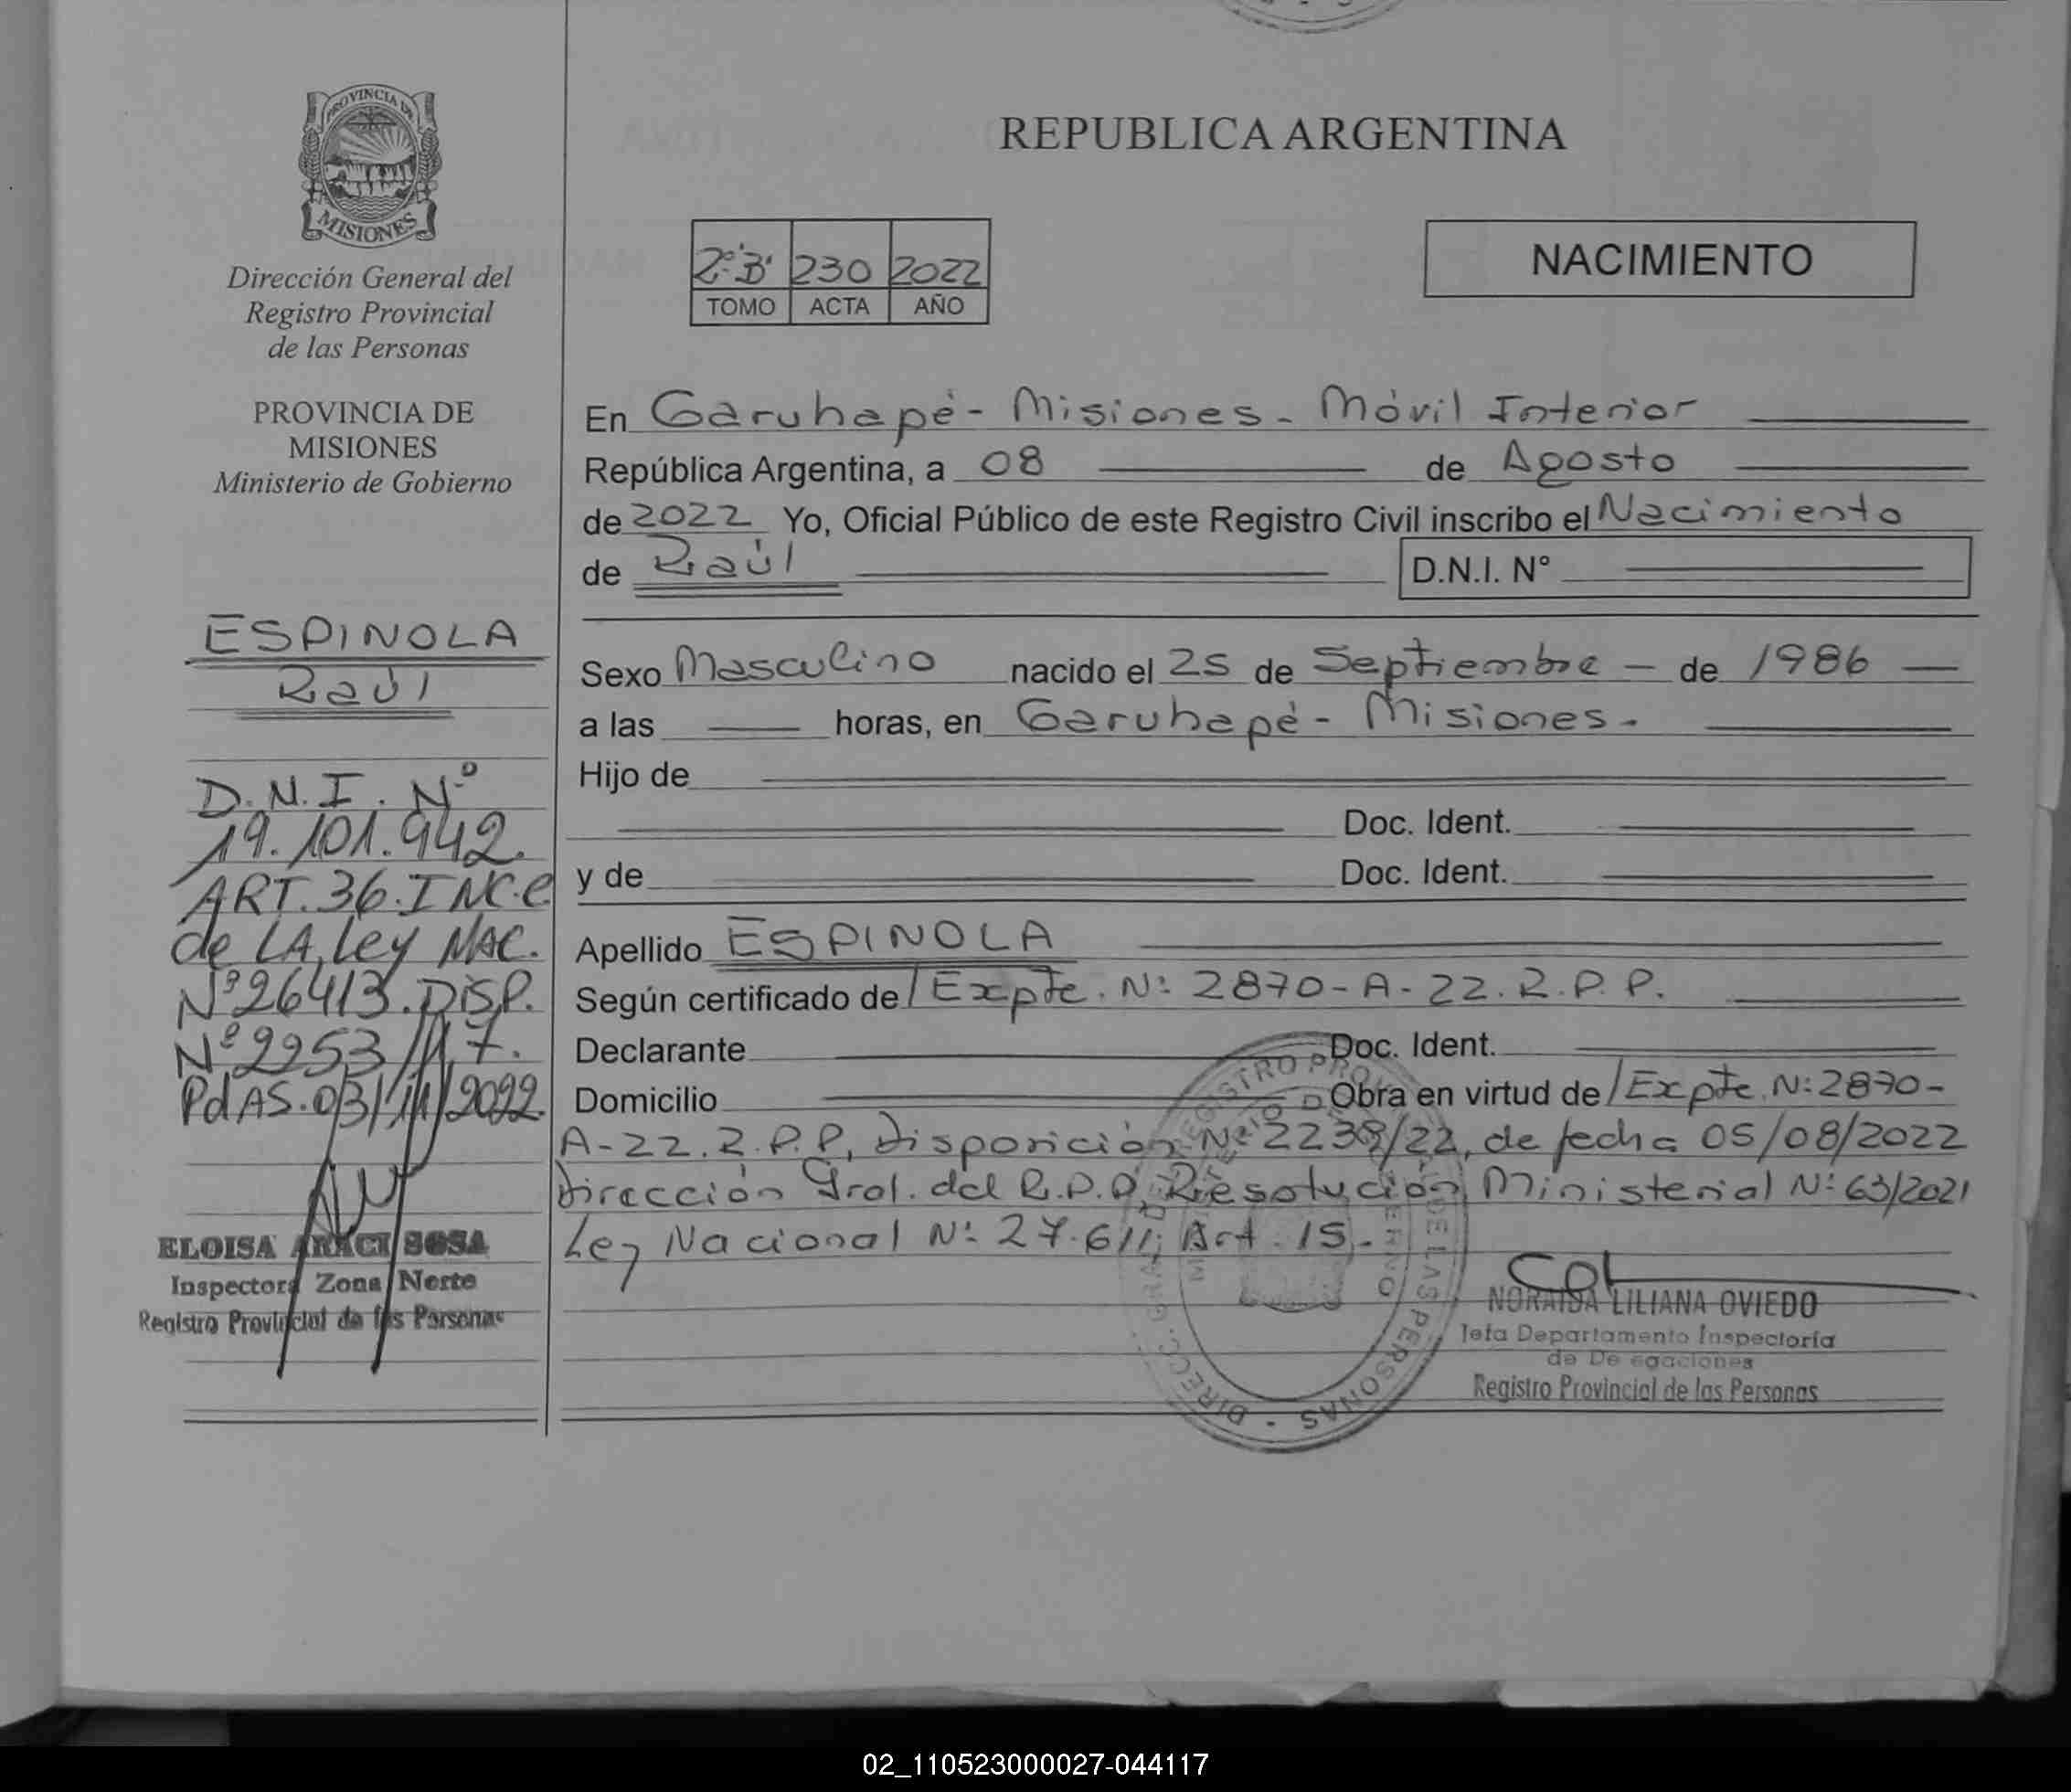 PROVINCIA DE
MISIONES
Dirección General del
Registro Provincial
de las Personas
PROVINCIA DE
MISIONES
Ministerio de Gobierno
ESPINOLA
Raúl
D.N.I. Nº
19.101.942.
ART.36.INC.C
de LA Ley NAC.
Nº26413.DISP.
Nº2953/17.
PdAS.03/11/2022.
ELOISA ARACI SOSA
Inspectora Zona Norte
Registro Provincial de las Personas
REPUBLICA ARGENTINA
2º"B" 230 2022
TOMO ACTA AÑO
NACIMIENTO
En Garuhapé - Misiones - Móvil Interior
República Argentina, a 08 de Agosto
de 2022 Yo, Oficial Público de este Registro Civil inscribo el Nacimiento
de Raúl D.N.I. N°
Sexo Masculino nacido el 25 de Septiembre - de 1986
a las horas, en Garuhapé - Misiones.
Hijo de
Doc. Ident.
y de Doc. Ident.
Apellido ESPINOLA
Según certificado de/ Expte. Nº 2870-A-22.R.P.P.
Declarante Doc. Ident.
Domicilio Obra en virtud de/ Expte. Nº 2870-
A-22.R.P.P, Disposición Nº /22, de fecha 05/08/2022
Dirección Gral. del R.P.P, Resolución Ministerial Nº 63/2021
Ley Nacional Nº 27.611, Art. 15.
NORAIDA LILIANA OVIEDO
Jefa Departamento Inspectoría
de Delegaciones
Registro Provincial de las Personas
02_110523000027-044117